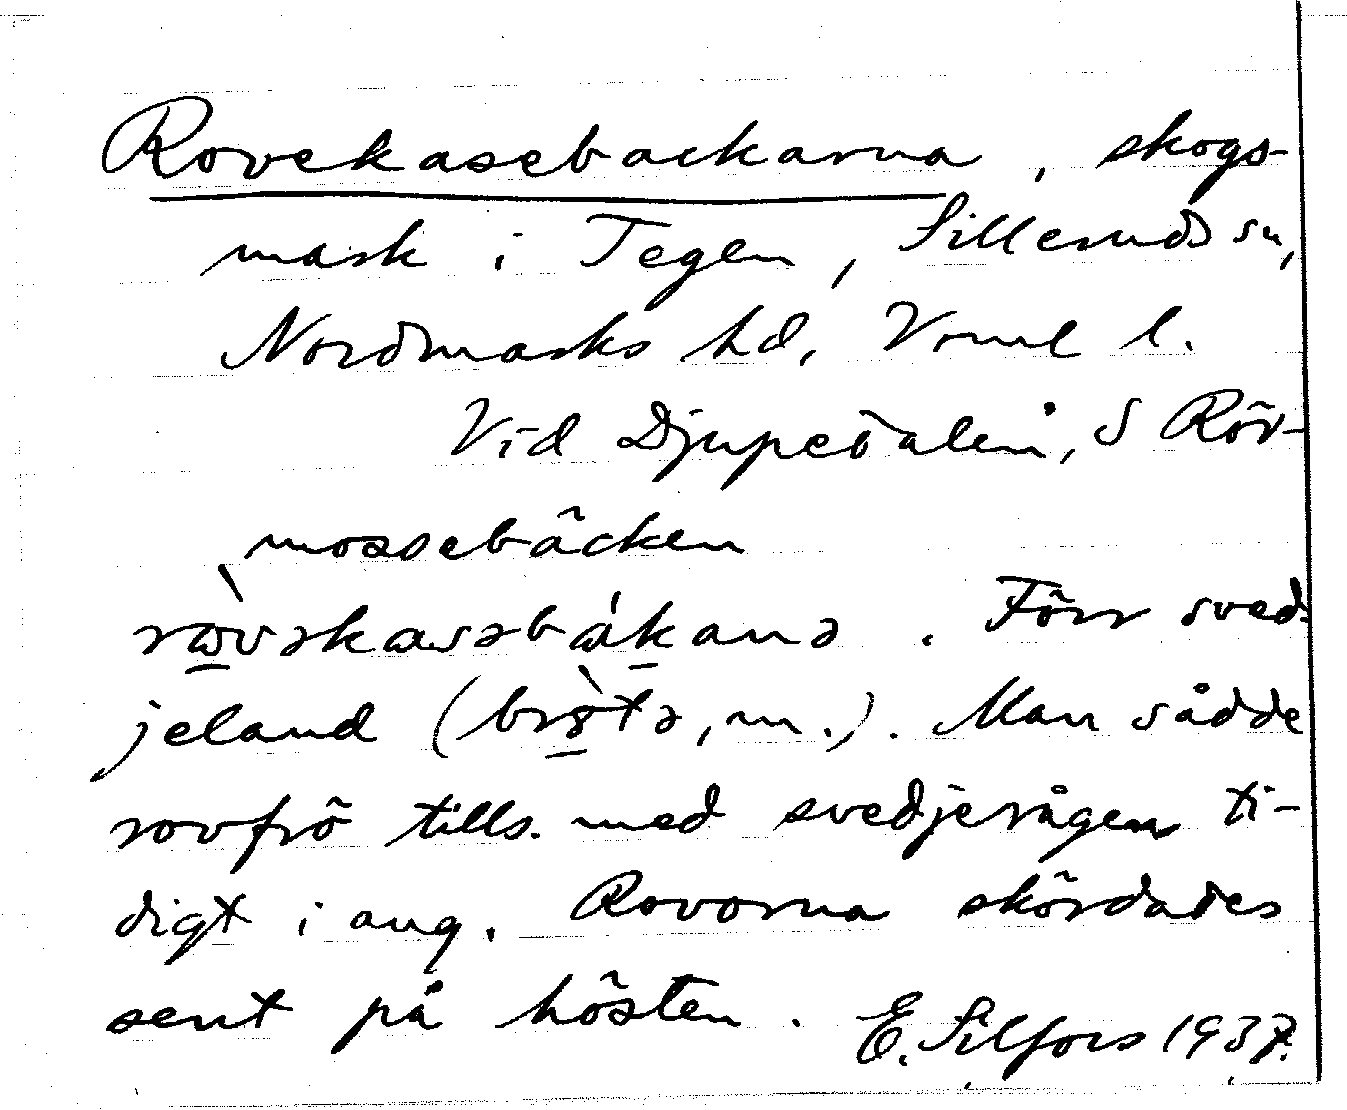 Rovekasebackarna, skogs-
mark i Tegen, Silleruds sn,
Nordmarks hd, Vrml l.
Vid Djupedalen, S Rör-
mossebäcken
Förr sved-
jeland (         , m.). Man sådde
rovfrö tills. med svedjerågen ti-
digt i aug. Rovorna skördades
sent på hösten. E. Silfors 1937.